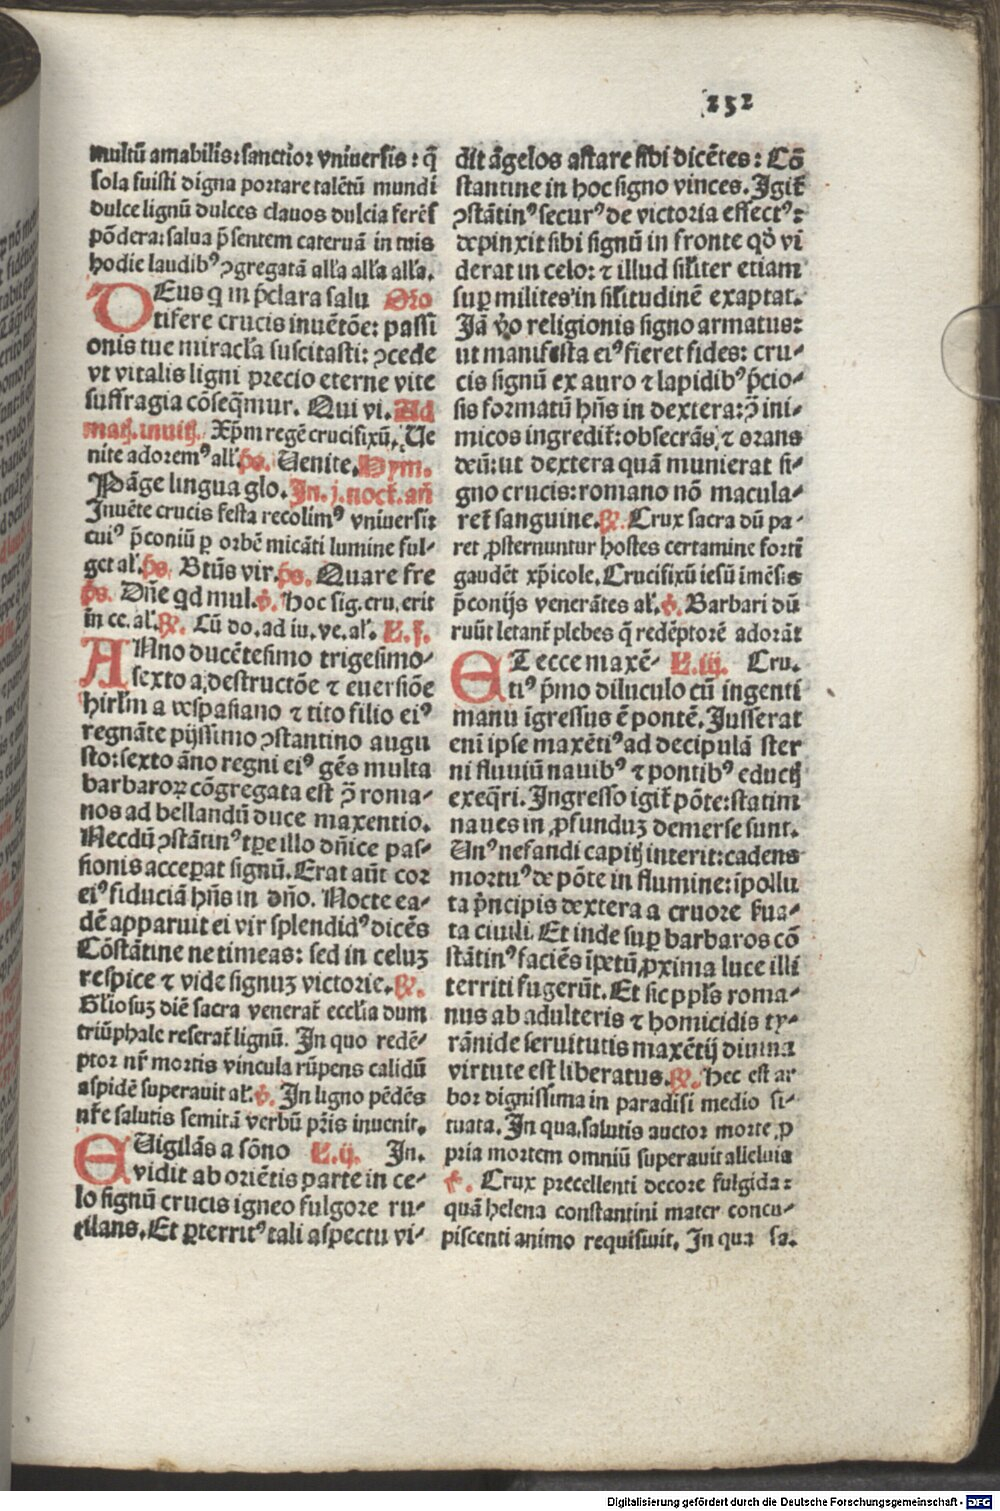 252
multū amabilis: sanctior vniuersis: q̄
sola fuisti digna portare talētū mundi
dulce lignū dulces clauos dulcia ferēs
pōdera: salua p̄sentem cateruā in tuis
hodie laudibꝰ ꝯgregatā alľa alľa alľa.
DEus q in p̄clara salu Oro
tifere crucis inuētōe: passi
onis tue miracľa suscitasti: ꝯcede
vt vitalis ligni precio eterne vite
suffragia cōseq̄mur. Qui vi. Ad
matꝭ. inuitꝭ. Xp̄m regē crucifixū, Ue
nite adoremꝰ alľ. p̄s. Uenite. Hym.
Pāge lingua glo. In. j. noct̄. an̄
Inuēte crucis festa recolimꝰ vniuersi:
cuiꝰ p̄coniū p orbē micāti lumine ful-
get aľ. p̄s. Bt̄us vir. p̄s. Quare fre
p̄s. Dn̄e qd mul. v̄. Hoc sig. cru. erit
in ce. aľ. ꝶ. Cū do. ad iu. ve. aľ. L. j.
ANno ducētesimo trigesimo-
sexto a, destructōe ⁊ euersiōe
hirľm a vespasiano ⁊ tito filio eiꝰ
regnāte pijssimo ꝯstantino augu
sto: sexto āno regni eiꝰ gēs multa
barbaroꝝ cōgregata est ꝯ̄ roma-
nos ad bellandū duce maxentio.
Necdū ꝯstātinꝰ tp̄e illo dn̄ice pas-
sionis acceperat signū. Erat aūt cor
eiꝰ fiduciā hn̄s in dn̄o. Nocte ea-
dē apparuit ei vir splendidꝰ dicēs
Cōstātine ne timeas: sed in celuꝫ
respice ⁊ vide signuꝫ victorie. ꝶ.
Gľiosuꝫ diē sacra venerat̄ eccľia dum
triūphale reserat̄ lignū. In quo redē-
ptor nr̄ mortis vincula rūpens calidū
aspidē superauit aľ. v̄. In ligno pēdēs
nr̄e salutis semitā verbū pr̄is inuenit.
EUigilās a sōno L. ij. In.
vidit ab oriētis parte in ce-
lo signū crucis igneo fulgore ru-
tilans. Et ꝑterritꝰ tali aspectu vi-
dit āgelos astare sibi dicētes: Cō
stantine in hoc signo vinces. Igit̄
ꝯstātinꝰ securꝰ de victoria effectꝰ:
depinxit sibi signū in fronte qd̄ vi
derat in celo: ⁊ illud siľiter etiam
suꝑ milites in siľitudinē exaptat.
Iā v̄o religionis signo armatus:
ut manifesta eiꝰ fieret fides: cru-
cis signū ex auro ⁊ lapidibꝰ p̄cio-
sis formatū hn̄s in dextera: ꝯ̄ ini-
micos ingredit̄: obsecrās, ⁊ orans
deū: ut dextera quā munierat si-
gno crucis: romano nō macula-
ret̄ sanguine. ꝶ. Crux sacra dū pa-
ret ꝓsternuntur hostes certamine forti
gaudēt xp̄icole. Crucifixū iesū imēsis
p̄conijs venerātes aľ. v̄. Barbari dū
ruūt letant̄ plebes q̄ redēptorē adorāt
ET ecce maxē- L. iij. Cru.
tiꝰ p̄mo diluculo cū ingenti
manu īgressus ē pontē. Iusserat
enī ipse maxētiꝰ ad decipulā ster
ni fluuiū nauibꝰ ⁊ pontibꝰ eductꝭ
exeq̄ri. Ingresso igit̄ pōte: statim
naues in ꝓfunduꝫ demerse sunt.
Unꝰ nefandi capitꝭ interit: cadens
mortuꝰ de pōte in flumine: īpollu
ta p̄ncipis dextera a cruore sua-
ta ciuili. Et inde suꝑ barbaros cō
stātinꝰ faciēs īpetū, ꝓxima luce illi
territi fugerūt. Et sic ppľs roma-
nus ab adulteris ⁊ homicidis ty-
rānide seruitutis maxētij diuina
virtute est liberatus. ꝶ. Hec est ar
bor dignissima in paradisi medio si-
tuata. In qua salutis auctor morte ꝓ
pria mortem omniū superauit alleluia
v̄. Crux precellenti decore fulgida:
quā helena constantini mater concu-
piscenti animo requisiuit. In qua sa.
Digitalisierung gefördert durch die Deutsche Forschungsgemeinschaft - DFG